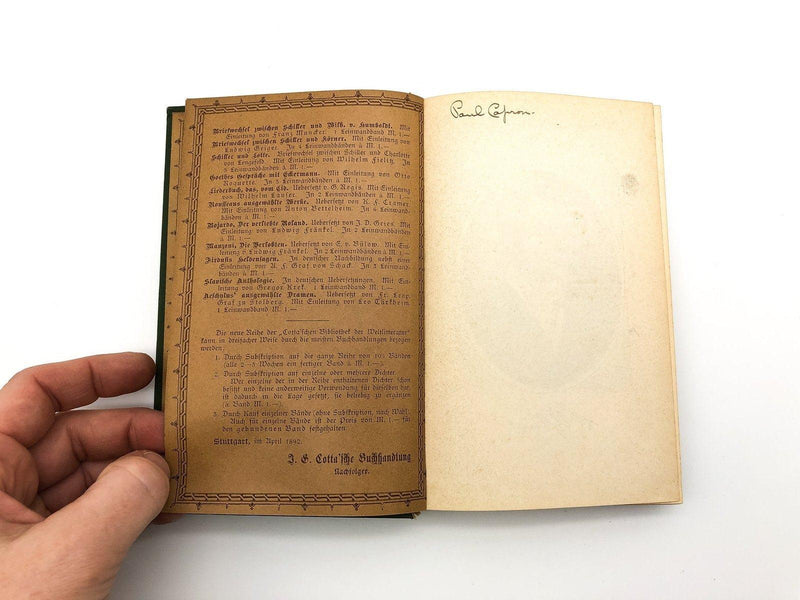 Briefwechsel zwischen Schiller und Wilh. v. Humboldt. Mit
Einleitung von Franz Muncker. 1 Leinwandband M. 1.—
Briefwechsel zwischen Schiller und Körner. Mit Einleitung von
Ludwig Geiger. In 4 Leinwandbänden à M. 1.—
Schiller und Lotte. Briefwechsel zwischen Schiller und Charlotte
von Lengefeld. Mit Einleitung von Wilhelm Fielitz. In
3 Leinwandbänden à M. 1.—
Goethes Gespräche mit Eckermann. Mit Einleitung von Otto
Roquette. In 3 Leinwandbänden à M. 1.—
Liederbuch, das, vom Cid. Uebersetzt v. G. Regis. Mit Einleitung
von Wilhelm Lauser. In 2 Leinwandbänden à M. 1.—
Rousseaus ausgewählte Werke. Uebersetzt von K. F. Cramer.
Mit Einleitung von Anton Bettelheim. In 6 Leinwand-
bänden à M. 1.—
Bojardo, Der verliebte Roland. Uebersetzt von J. D. Gries. Mit
Einleitung von Ludwig Fränkel. In 2 Leinwandbänden à
M. 1.—
Manzoni, Die Verlobten. Uebersetzt von E. v. Bülow. Mit Ein-
leitung v. Ludwig Fränkel. In 2 Leinwandbänden à M. 1.—
Firdusis Heldensagen. In deutscher Nachbildung nebst einer
Einleitung von A. F. Graf von Schack. In 3 Leinwand-
bänden à M. 1.—
Slavische Anthologie. In deutschen Uebersetzungen. Mit Ein-
leitung von Gregor Krek. 1 Leinwandband M. 1.—
Aeschylus' ausgewählte Dramen. Uebersetzt von Fr. Leop.
Graf zu Stolberg. Mit Einleitung von Leo Türkheim.
1 Leinwandband M. 1.—
Die neue Reihe der „Cotta'schen Bibliothek der Weltlitteratur“
kann in dreifacher Weise durch die meisten Buchhandlungen bezogen
werden:
1. Durch Subskription auf die ganze Reihe von 105 Bänden
(alle 2—3 Wochen ein fertiger Band à M. 1.—).
2. Durch Subskription auf einzelne oder mehrere Dichter.
Wer einzelne der in der Reihe enthaltenen Dichter schon
besitzt und keine anderweitige Verwendung für dieselben hat,
ist dadurch in die Lage gesetzt, sie beliebig zu ergänzen
(à Band M. 1.—).
3. Durch Kauf einzelner Bände (ohne Subskription, nach Wahl).
Auch für einzelne Bände ist der Preis von M. 1.— für
den gebundenen Band festgehalten.
Stuttgart, im April 1892.
J. G. Cotta'sche Buchhandlung
Nachfolger.
Paul Capron.